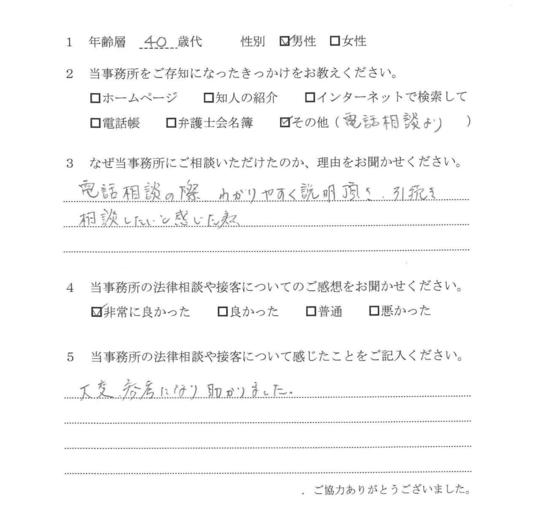 1 年齢層 40 歳代 性別 ☑男性 □女性
2 当事務所をご存知になったきっかけをお教えください。
□ホームページ □知人の紹介 □インターネットで検索して
□電話帳 □弁護士会名簿 ☑その他(電話相談より)
3 なぜ当事務所にご相談いただけたのか、理由をお聞かせください。
電話相談の際 わかりやすく説明頂き、引続き
相談したいと感じた為
4 当事務所の法律相談や接客についてのご感想をお聞かせください。
☑非常に良かった □良かった □普通 □悪かった
5 当事務所の法律相談や接客について感じたことをご記入ください。
大変 参考になり助かりました.
ご協力ありがとうございました。